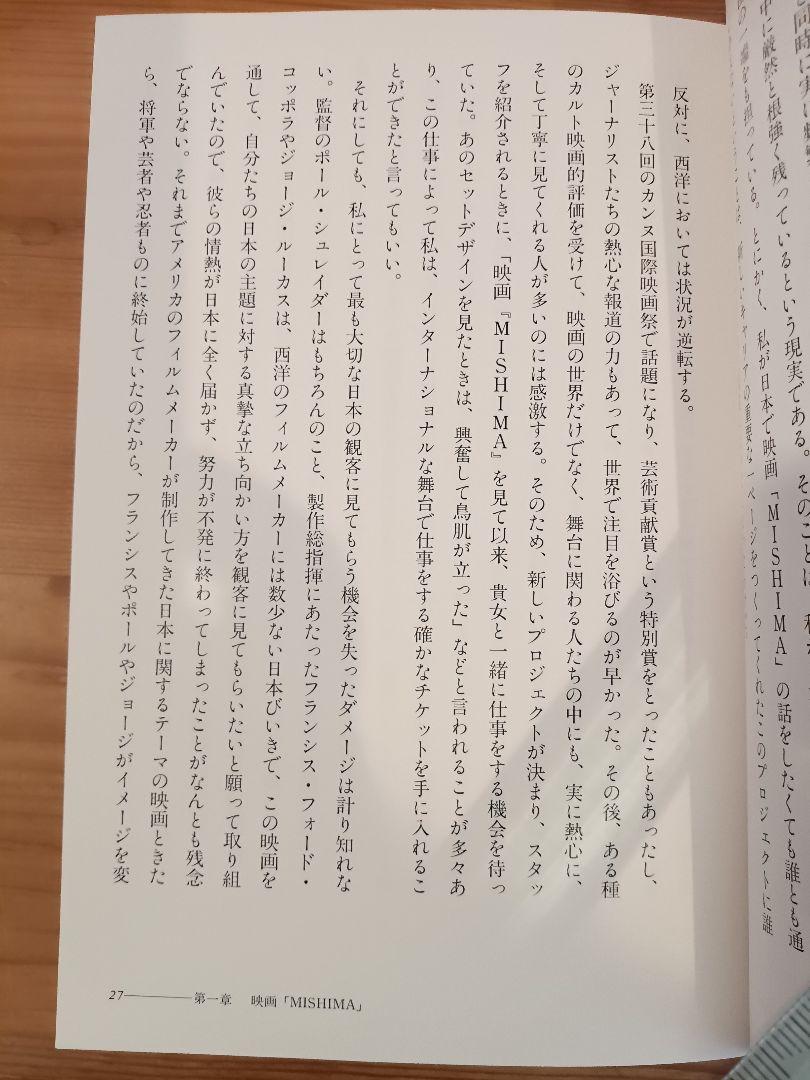 中に厳然と根強く残っているという現実である。そのことは
をも担っている。とにかく、私が日本で映画「MISHIMA」の話をしたくても誰とも通
キャリアの重要な一ページをつくってくれたこのプロジェクトに誰
反対に、西洋においては状況が逆転する。
第三十八回のカンヌ国際映画祭で話題になり、芸術貢献賞という特別賞をとったこともあったし、
ジャーナリストたちの熱心な報道の力もあって、世界で注目を浴びるのが早かった。その後、ある種
のカルト映画的評価を受けて、映画の世界だけでなく、舞台に関わる人たちの中にも、実に熱心に、
そして丁寧に見てくれる人が多いのには感激する。そのため、新しいプロジェクトが決まり、スタッ
フを紹介されるときに、「映画『MISHIMA』を見て以来、貴女と一緒に仕事をする機会を待っ
ていた。あのセットデザインを見たときは、興奮して鳥肌が立った」などと言われることが多々あ
り、この仕事によって私は、インターナショナルな舞台で仕事をする確かなチケットを手に入れるこ
とができたと言ってもいい。
それにしても、私にとって最も大切な日本の観客に見てもらう機会を失ったダメージは計り知れな
い。監督のポール・シュレイダーはもちろんのこと、製作総指揮にあたったフランシス・フォード・
コッポラやジョージ・ルーカスは、西洋のフィルムメーカーには数少ない日本びいきで、この映画を
通して、自分たちの日本の主題に対する真摯な立ち向かい方を観客に見てもらいたいと願って取り組
んでいたので、彼らの情熱が日本に全く届かず、努力が不発に終わってしまったことがなんとも残念
でならない。それまでアメリカのフィルムメーカーが制作してきた日本に関するテーマの映画ときた
ら、将軍や芸者や忍者ものに終始していたのだから、フランシスやポールやジョージがイメージを変
27 第一章 映画「MISHIMA」